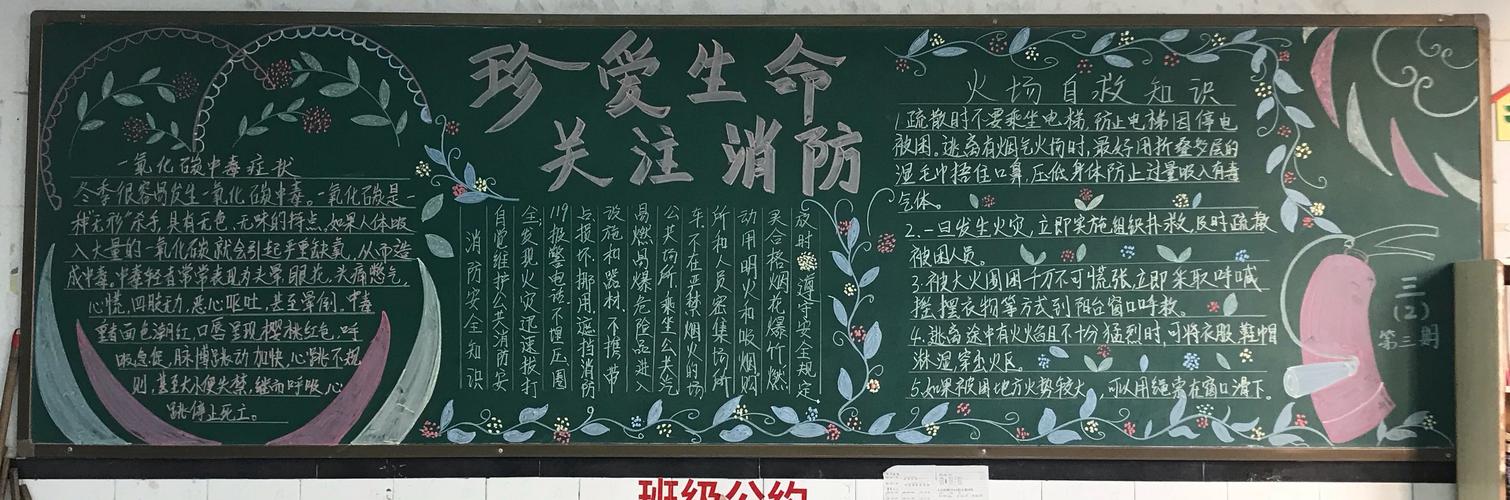 珍爱生命
关注消防
一氧化碳中毒症状
冬季很容易发生一氧化碳中毒。一氧化碳是一
种"无形"杀手,具有无色、无味的特点,如果人体吸
入大量的一氧化碳就会引起严重缺氧,从而造
成中毒。中毒轻者常常表现为头晕眼花、头痛憋气、
心慌、四肢无力、恶心呕吐,甚至晕倒。中毒
重者面色潮红,口唇呈现樱桃红色,呼
吸急促,脉搏跳动加快,心跳不规
则,甚至大小便失禁,继而呼吸、心
跳停止死亡。
消防安全知识
自觉维护公共消防安
全,发现火灾迅速拨打
119报警电话,不埋压、圈
占、损坏、挪用、遮挡消防
设施和器材。不携带
易燃易爆危险品进入
公共场所、乘坐公共汽
车。不在严禁烟火的场
所和人员密集场所
动用明火和吸烟。购
买合格烟花爆竹,燃
放时遵守安全规定,
火场自救知识
1.疏散时不要乘坐电梯,防止电梯因停电
被困。逃离有烟气火场时,最好用折叠多层的
湿毛巾捂住口鼻,压低身体防止过量吸入有毒
气体。
2.一旦发生火灾,立即实施组织扑救,及时疏散
被困人员。
3.被大火围困千万不可慌张,立即采取呼喊
挥摆衣物等方式到阳台窗口呼救。
4.逃离途中有火焰且不切猛烈时,可将衣服鞋帽
淋湿,穿出火区。
5.如果被困地方火势较大,可以用绳索在窗口滑下。
三
(2)
第三期
班级公约